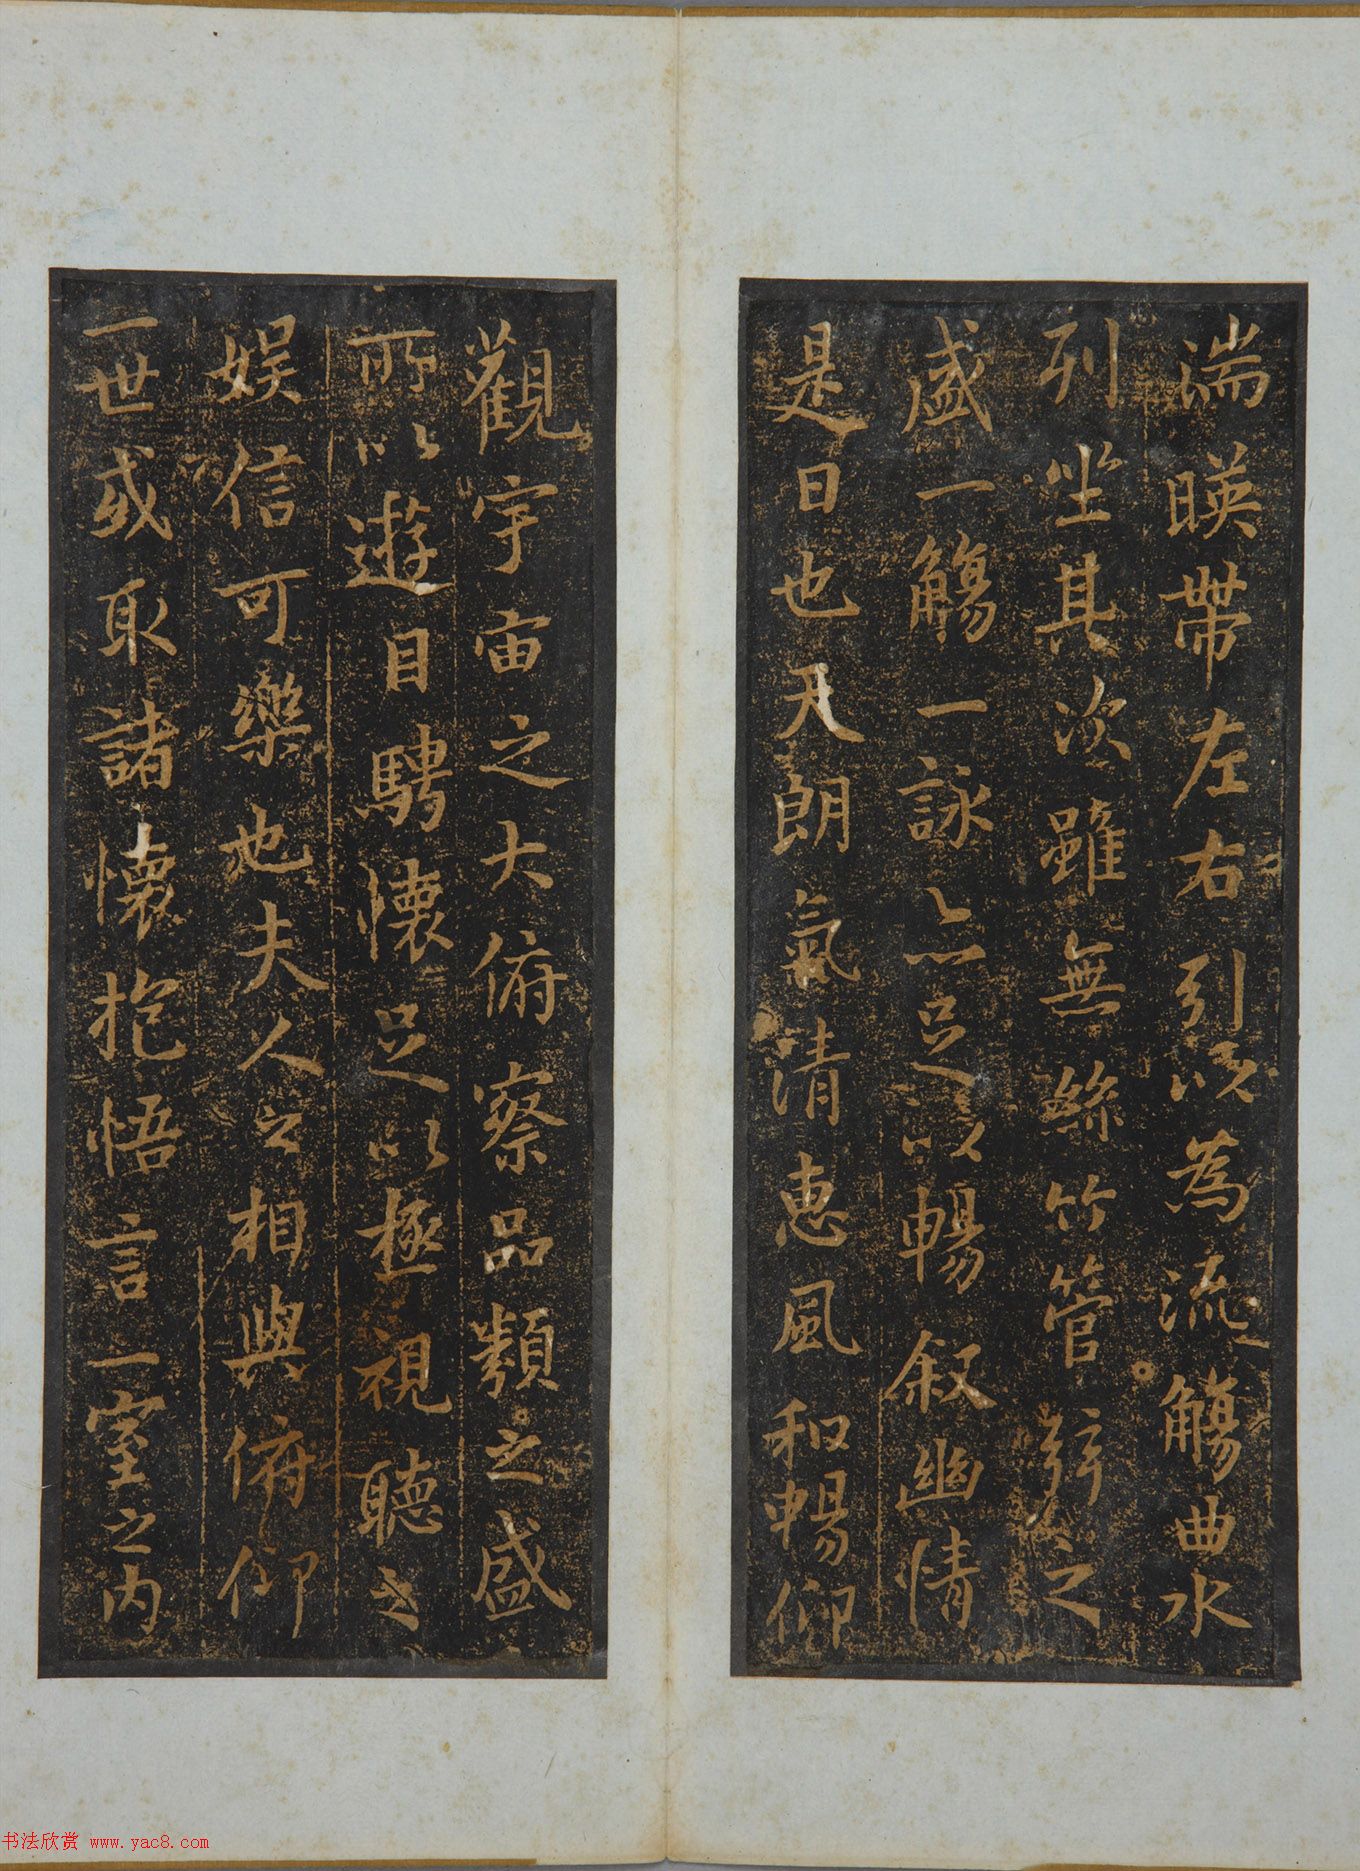 湍暎帶左右引以為流觴曲水
列坐其次雖無絲竹管弦之
盛一觴一詠亦足以暢叙幽情
是日也天朗氣清惠風和暢仰
觀宇宙之大俯察品類之盛
所以遊目騁懷足以極視聽之
娛信可樂也夫人之相與俯仰
一世或取諸懷抱悟言一室之内
书法欣赏 www.yac8.com